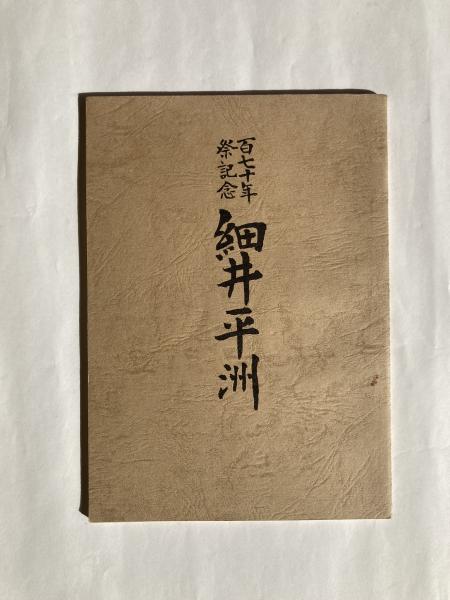 百七十年
祭記念
細井平洲